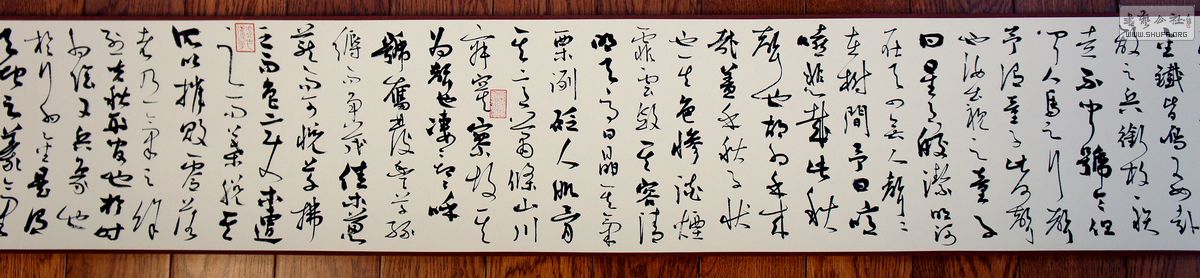 金鐵皆鳴又如赴
敵之兵銜枚疾
走不聞號令但
聞人馬之行聲
予謂童子此何聲
也汝出視之童子
曰星月皎潔明河
在天四無人聲聲
在樹間予曰噫
嘻悲哉此秋
聲也胡為乎來
哉蓋夫秋之狀
也其色慘淡煙
霏雲斂其容清
明天高日晶其氣
栗冽砭人肌骨
其意蕭條山川
寂寥故其
為聲也淒淒切切呼
號奮發豐草綠
縟而爭茂佳木蔥
蘢而可悅草拂
之而色變木遭
之而葉脫其
所以摧敗零落
者乃一氣之餘
烈夫秋刑官也於時
為陰又兵象也
於行為金是謂
天地之義氣
WWW.SHUFA.ORG